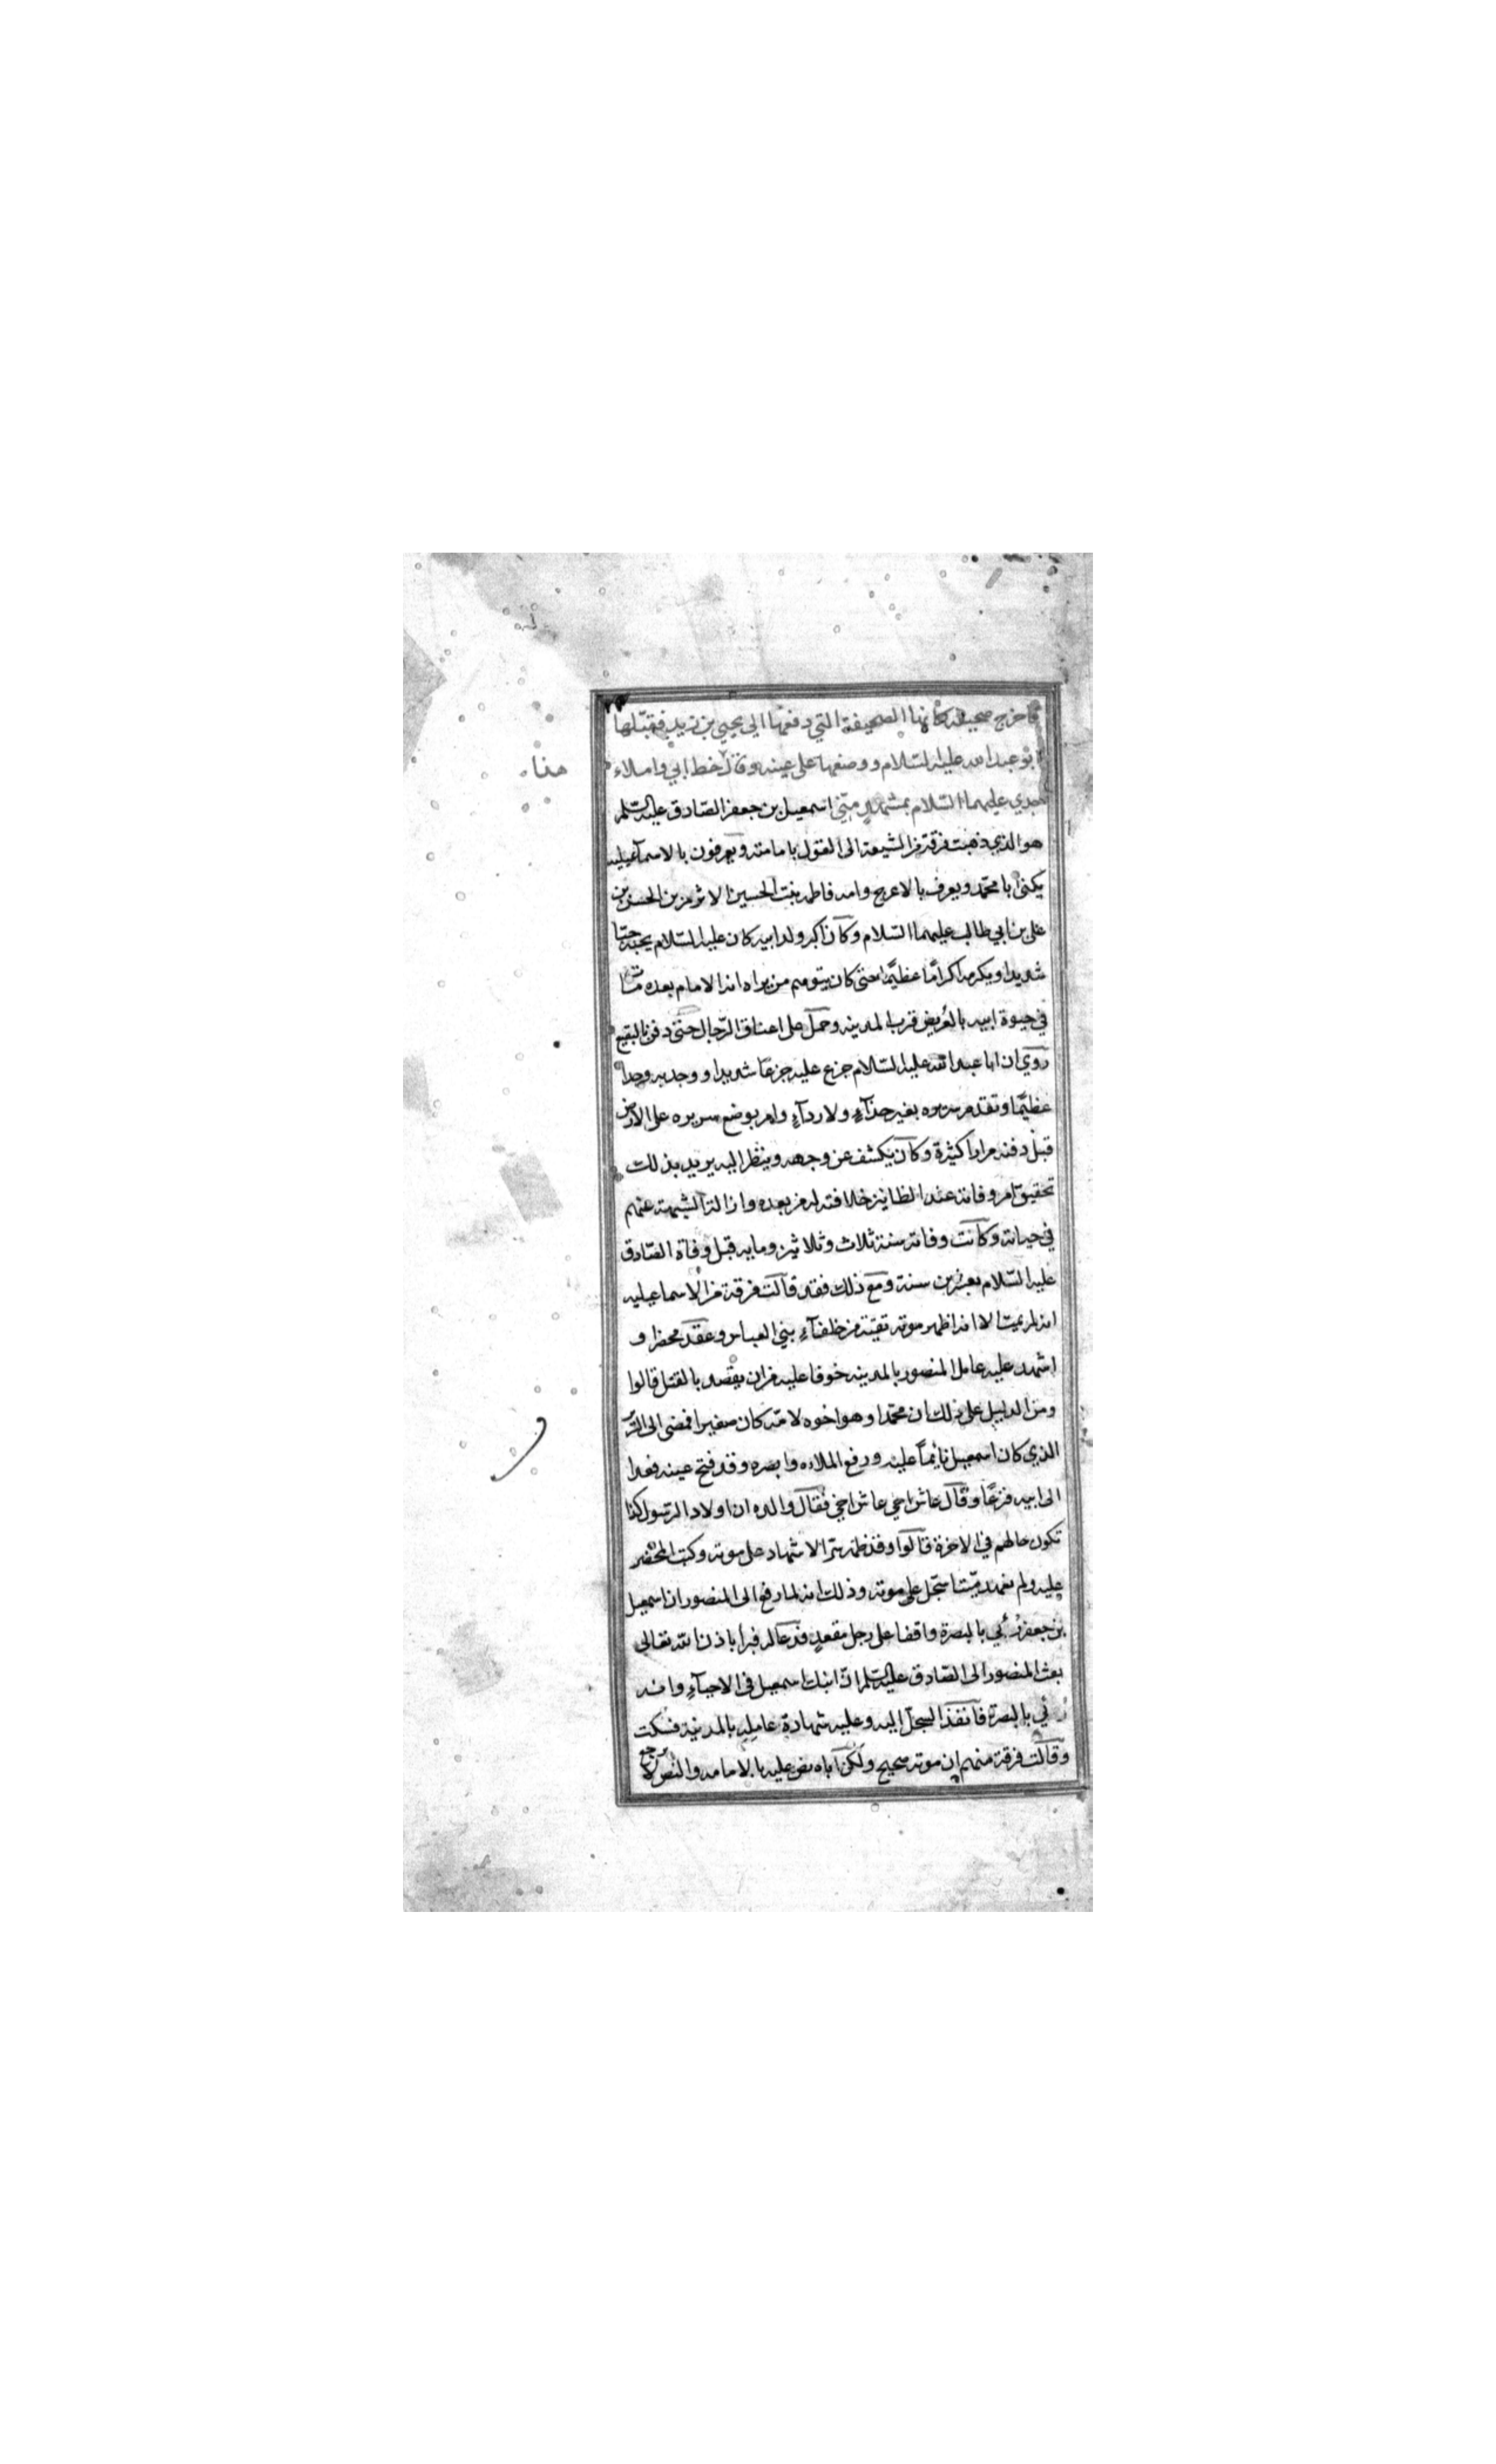 فاخرج صحيفة كانها الصحيفة التي دفعها الي يحيي بن زيد فقبّلها
ابو عبد الله عليه السّلام ووضعها على عينه وقال هذا خط ابي واملاء
جدي عليهما السّلام بمشهد منّي اسمعيل بن جعفر الصّادق عليه السّلم
هو الذي ذهبت فرقة من الشيعة الى القول بامامته ويعرفون بالاسمآعيليه
يكنى ابا محمّد ويعرف بالاعرج وامه فاطمه بنت الحسين الاثرم بن الحسن بن
على بن ابي طالب عليهما السّلام وكان اكبر ولد ابيه كان عليه السّلام يحبّه حبّا
شديدا ويكرمه اكرامًا عظيمًا حتى كان يتوهم من يراه انه الامام بعده مات
في حيوة ابيه بالعُريض قرب المدينه وحمل على اعناق الرّجال حتى دفن بالبقيع
روي ان ابا عبد الله عليه السّلام جزع عليه جزعًا شديدا ووجد به وجدا
عظيمًا وتقدم سريره بغير حذآءٍ ولا ردآءٍ وامر بوضع سريره على الارض
قبل دفنه مرارا كثيرة وكان يكشف عن وجهه وينظر اليه يريد بذلك
تحقيق امر وفاته عند الظانين خلافته له من بعده وازالة الشبهة عنهم
في حياته وكانت وفاته سنة ثلاث وثلاثين ومايه قبل وفاة الصّادق
عليه السّلام بعشرين سنة ومع ذلك فقد قالت فرقة من الاسماعيليه
انه لم يمت الا انه اظهر موته تقيّة من خلفآءِ بني العباس وعقد محضرا و
اشهد عليه عامل المنصور بالمدينه خوفا عليه من ان يقصد بالقتل قالوا
ومن الدليل على ذلك ان محمّدا وهو اخوه لامّه كان صغيرا فمضى الى السّرير
الذي كان اسمعيل نائمًا عليه ورفع الملاءه وابصره وقد فتح عينه فعدا
الى ابيه فزعًا وقال عاش اخي عاش اخي فقال والده ان اولاد الرّسول كذا
تكون حالهم في الاخرة قالوا وقد ظهر سرّ الاشهاد على موته وكتب المحضر
عليه ولم نعهد ميّتا سجّل على موته وذلك انه لما رفع الى المنصور ان اسمعيل
بن جعفر رُئي بالبصرة واقفا على رجل مقعدٍ فدعا له فبرأ باذن الله تعالي
بعث المنصور الى الصّادق عليه السّلم انّ ابنك اسمعيل في الاحيآءِ وانه
رُئي بالبصرة فانفذ السجلّ اليه وعليه شهادة عامله بالمدينة فسكت
وقالت فرقة منهم ان موته صحيح ولكن اباه نص عليه بالامامه والنّص لا يرجع
هذا